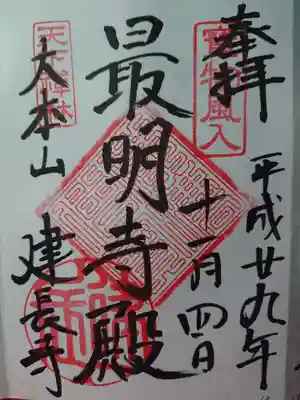 奉拝
宝物風入
平成廿九年
十一月四日
最明寺殿
天下禅林
大本山 建長寺